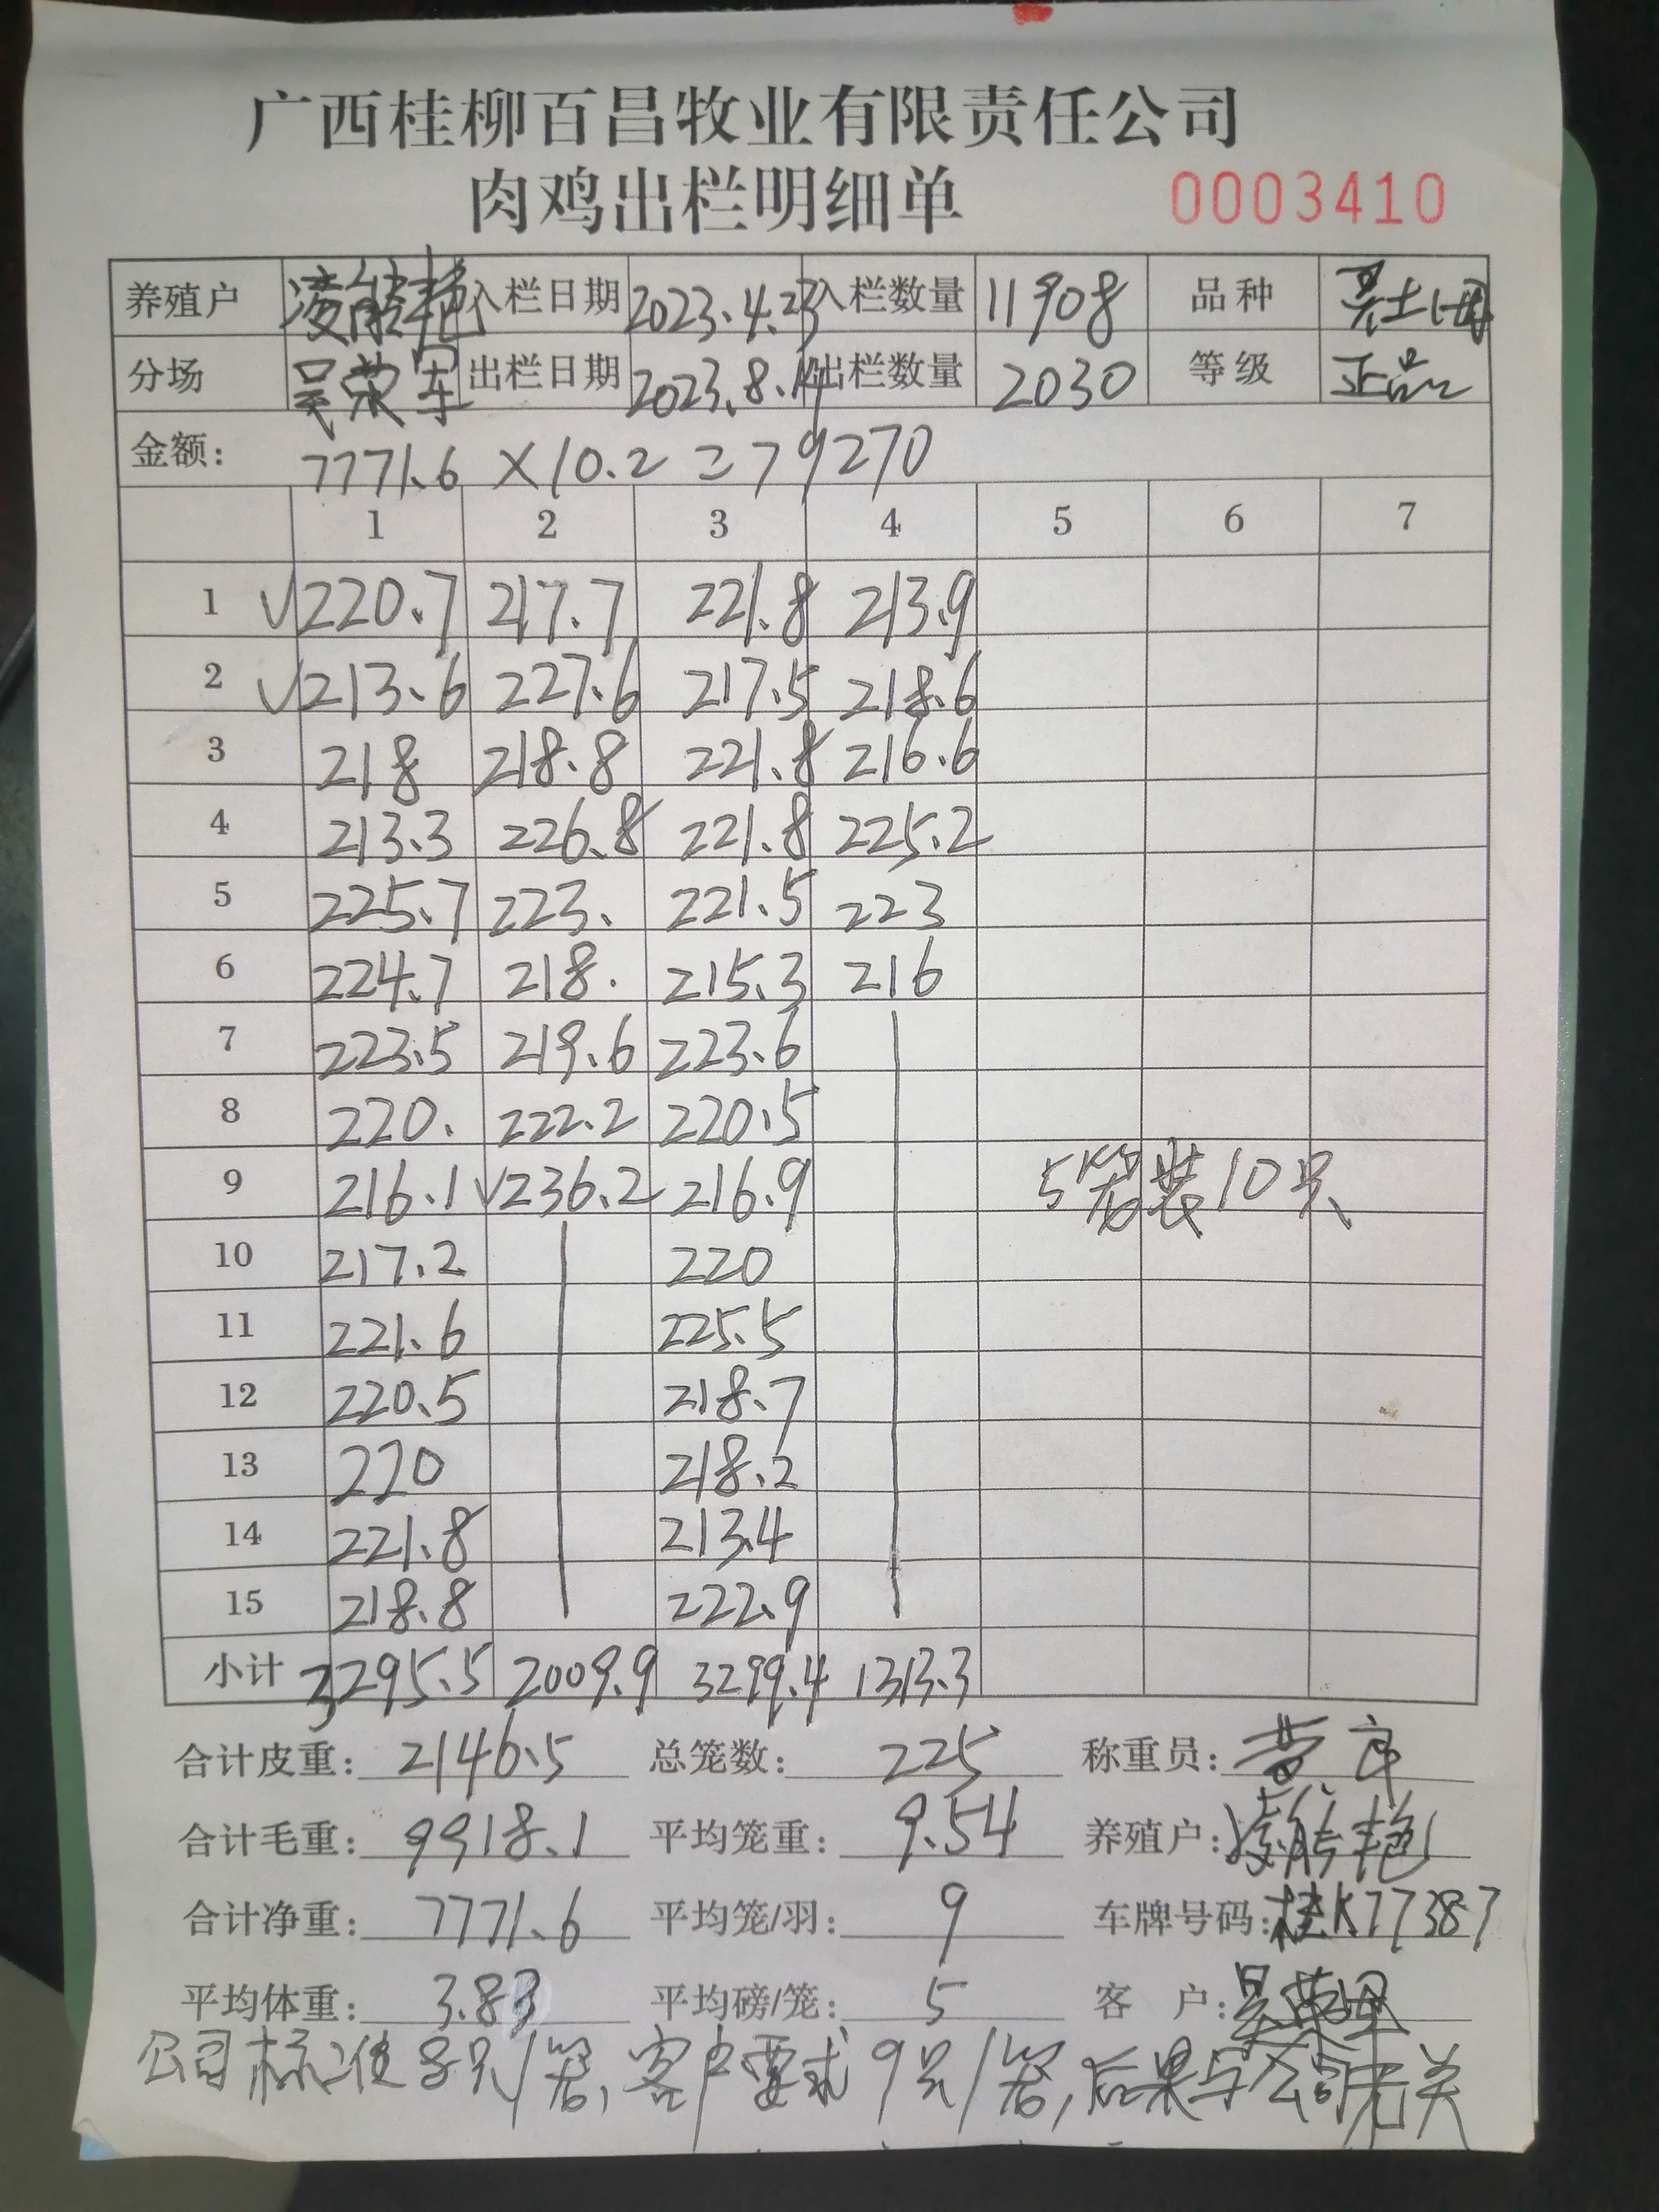 广西桂柳百昌牧业有限责任公司
肉鸡出栏明细单 0003410
养殖户 凌能艳 入栏日期 2023.4.23 入栏数量 11908 品种 土
分场 吴荣军 出栏日期 2023.8.14 出栏数量 2030 等级 正品
金额: 7771.6 X10.2=79270
1 2 3 4 5 6 7
1 √220.7 217.7 221.8 213.9
2 √213.6 227.6 217.5 218.6
3 218 218.8 221.8 216.6
4 213.3 226.8 221.8 225.2
5 225.7 223. 221.5 223
6 224.7 218. 215.3 216
7 223.5 219.6 223.6
8 220. 222.2 220.5
9 216.1 √236.2 216.9 5笼装10只
10 217.2 220
11 221.6 225.5
12 220.5 218.7
13 220 218.2
14 221.8 213.4
15 218.8 222.9
小计 3295.5 2009.9 3299.4 1313.3
合计皮重: 2146.5 总笼数: 225 称重员:
合计毛重: 9918.1 平均笼重: 9.54 养殖户: 凌能艳
合计净重: 7771.6 平均笼/羽: 9 车牌号码: 桂K77387
平均体重: 3.83 平均磅/笼: 5 客户: 吴荣军
公司标准8只/笼,客户要求9只/笼,后果与公司无关